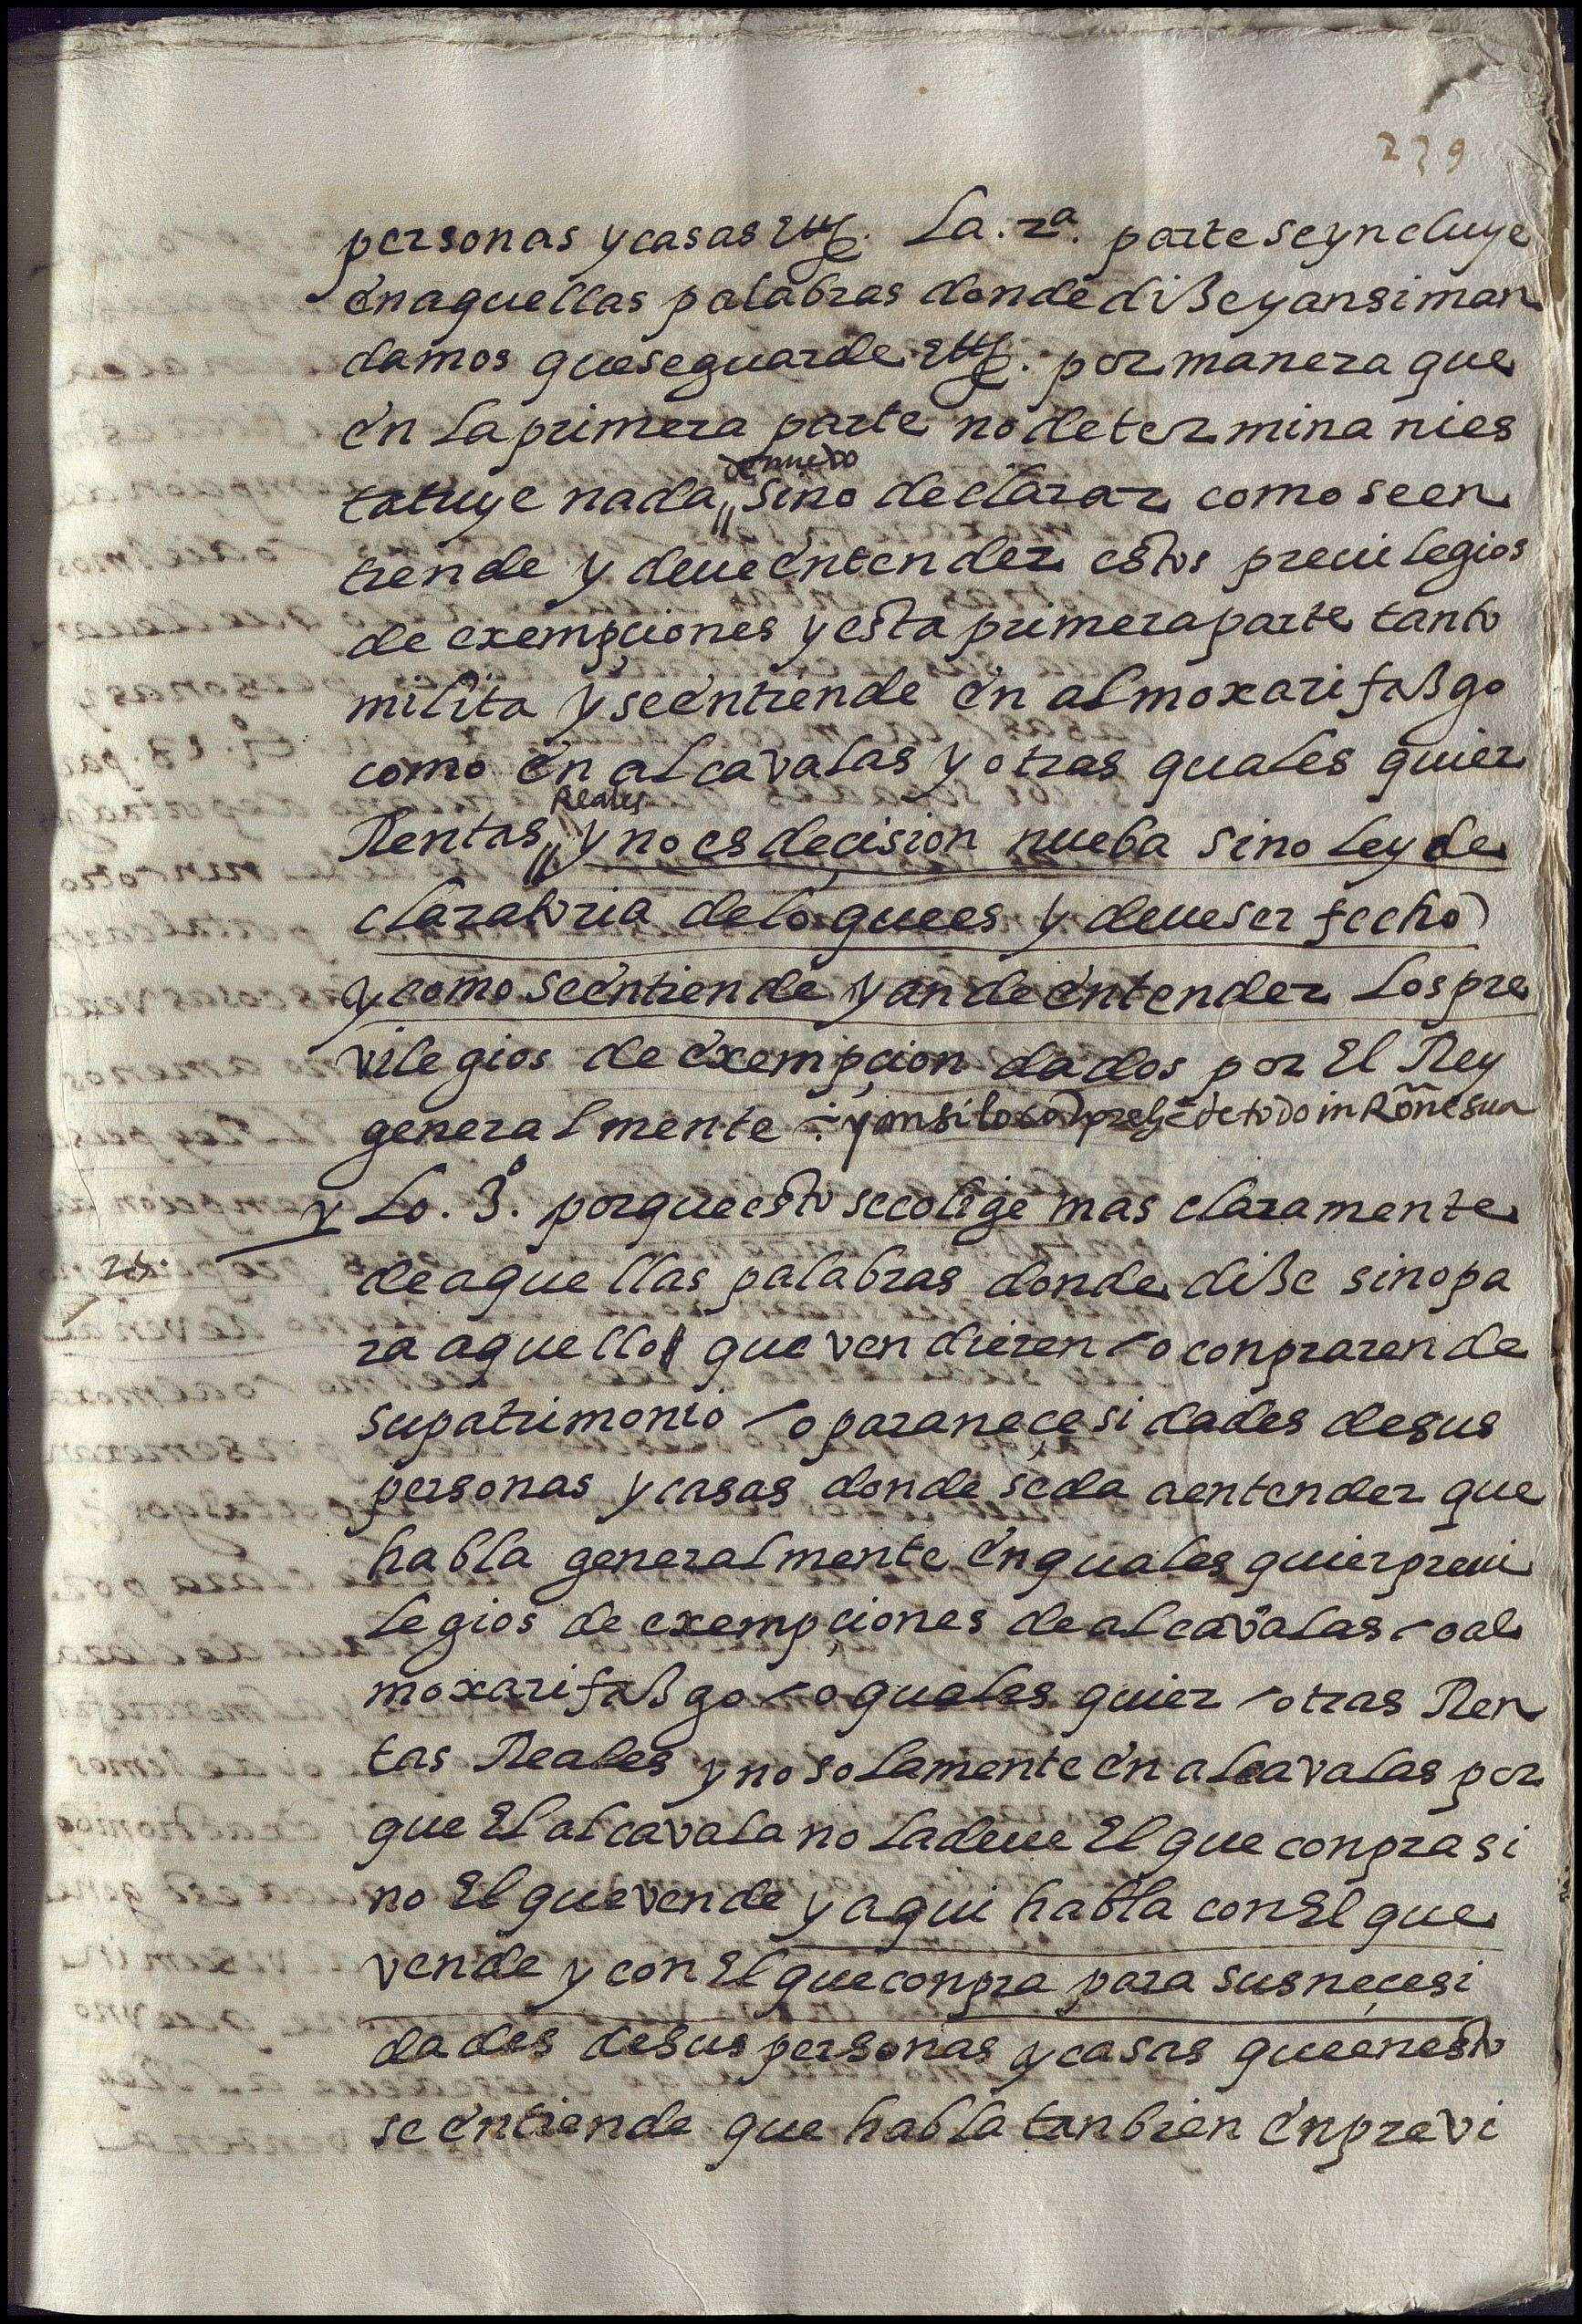 239
personas y casas etc. La. 2ª. parte se yncluye
en aquellas palabras donde dize y ansi man
damos que se guarde etc. por manera que
en la primera parte no determina ni es
de nuevo
tatuye nada, sino declarar como se en
tiende y deue entender estos preuilegios
de exempçiones y esta primera parte tanto
milita y se entiende en almoxarifazgo
como en alcavalas y otras quales quier
Reales
Rentas, y no es deçision nueba sino ley de
claratoria de lo que es y deue ser fecho
y como se entiende y an de entender los pre
vilegios de exempçion dados por El Rey
generalmente. y ansi lo de todo in Rone sua
y Lo. 3º. porque esto se colige mas claramente
de aquellas palabras donde dize sino pa
ra aquello que vendieren o conpraren de
su patrimonio o para neçesidades de sus
personas y casas donde se da a entender que
habla generalmente en quales quier preui
legios de exempçiones de alcavalas o al
moxarifazgo o quales quier otras Ren
tas Reales y no solamente en alcavalas por
que El alcavala no la deue El que conpra si
no El que vende y aqui habla con El que
vende y con El que conpra para sus neçesi
dades de sus personas y casas que en esto
se entiende que habla tanbien en previ